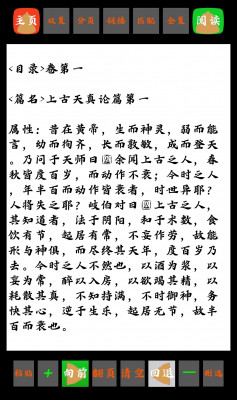 主页 双复 分页 链接 匹配 全复 阅读
<目录>卷第一
<篇名>上古天真论篇第一
属性：昔在黄帝，生而神灵，弱而能
言，幼而徇齐，长而敦敏，成而登天
。乃问于天师曰 余闻上古之人，春
秋皆度百岁，而动作不衰；今时之人
，年半百而动作皆衰者，时世异耶？
人将失之耶？岐伯对曰 上古之人，
其知道者，法于阴阳，和于术数，食
饮有节，起居有常，不妄作劳，故能
形与神俱，而尽终其天年，度百岁乃
去。今时之人不然也，以酒为浆，以
妄为常，醉以入房，以欲竭其精，以
耗散其真，不知持满，不时御神，务
快其心，逆于生乐，起居无节，故半
百而衰也。
粘贴 + 向前 翻页 清空 回退 一